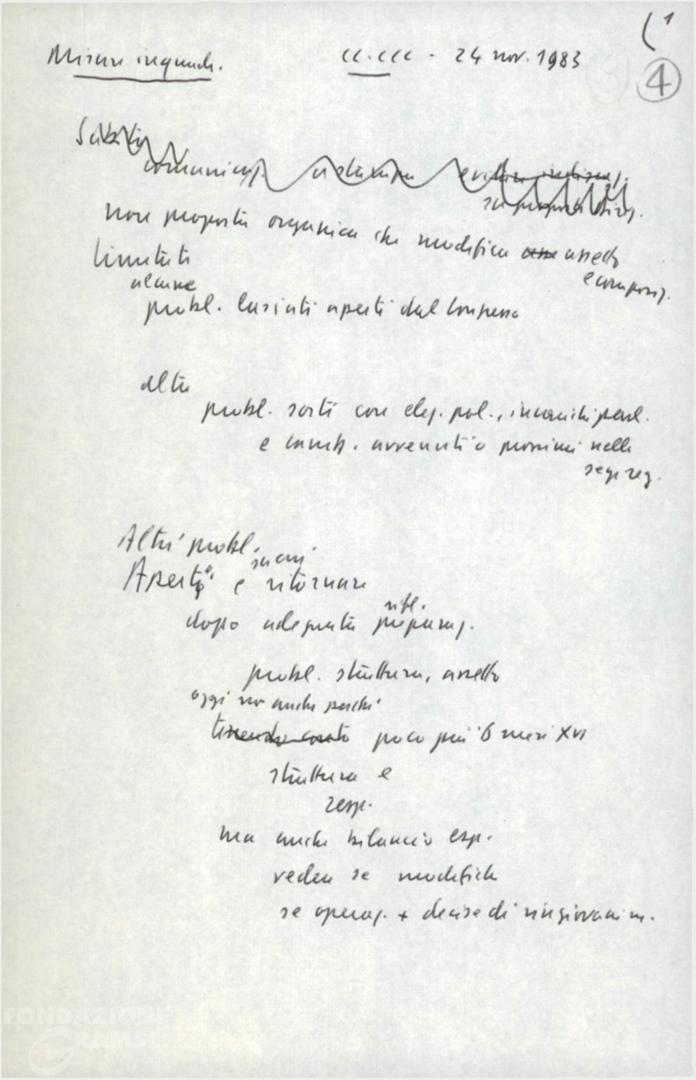 (1
Misure inquadr. CC.CCC - 24 nov. 1983
4
Subito
comunicaz. a stampa
non proposta organica che modifica assetto
e composiz.
Limitati
alcune
probl. lasciati aperti dal Congresso
altri
probl. sorti con elez. pol., incarichi parl.
e camb. avvenuti o prossimi nelle
segr. reg.
Altri probl.
su cui
Aperti e ritornare
rifl.
dopo adeguata preparaz.
probl. struttura, assetto
oggi no anche perché
tenendo conto poco più 6 mesi XVI
struttura e
resp.
ma anche bilancio esp.
vedere se modifiche
se operaz. + decise di ringiovanim.
FONDAZIONE
GRAMSCI